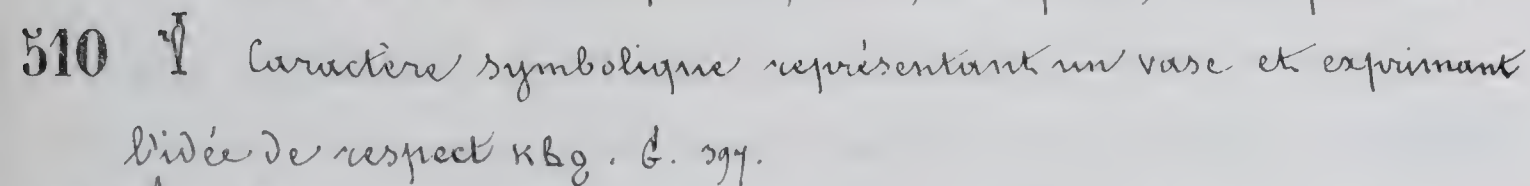 510 Caractère symbolique représentant un vase et exprimant
l'idée de respect ⲕⲃϩ. G. 397.